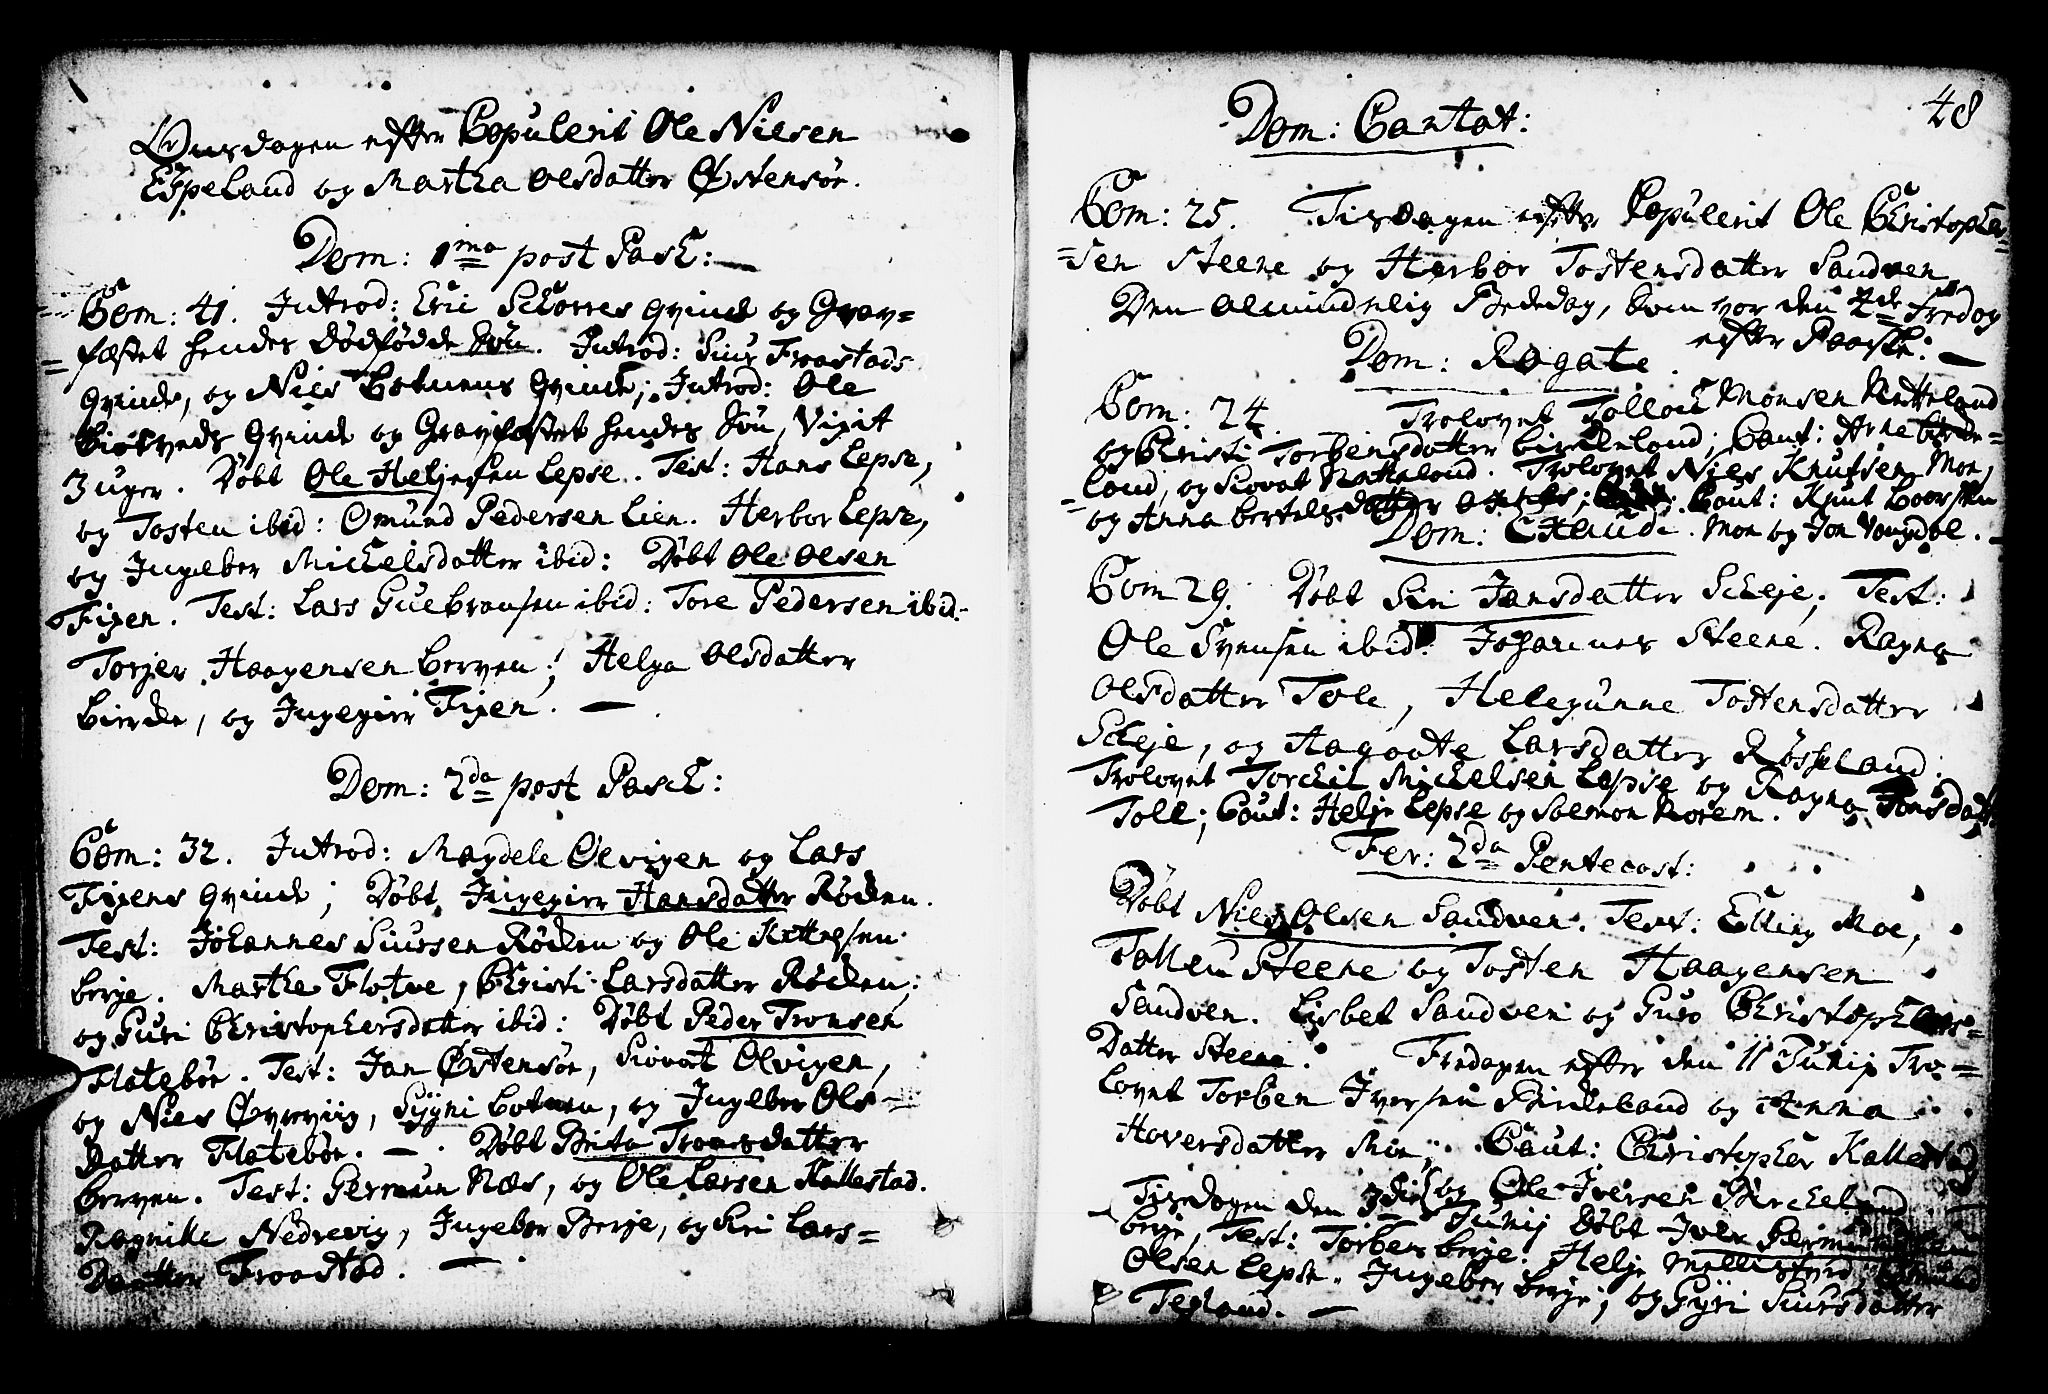 Onsdagen efter Copulerit Ole Nielsen
Espeland og Martha Olsdatter Østensöe.
Dom: 1ma post Pasch:
Com: 41. Introd: Eric Schorres Qvinde og Grav=
=fæstet hendes dödfödde Sön. Introd: Siur Fraastads
Qvinde, og Niels Botnens Qvinde; Introd: Ole
Qvinde og Gravfæstet hendes Sön, Vixit
3 uger. Döbt Ole Heljesen Lepse. Test: Hans Lepse,
og Tosten ibid: Omund Pedersen Lien. Herbor Lepse,
og Ingeber Michelsdatter ibid: Döbt Ole Olsen
Fixen. Test: Lars Guebransen ibid: Tore Pedersen ibid:
Torjer Haagensen Berven; Helga Olsdatter
Bircke, og Ingegier Fixen. —
Dom: 2da post Pasch:
Com: 32. Introd: Magdele Olvigen og Lars
Fixens Qvinde; Döbt Ingegier Hansdatter Röcken.
Test: Johannes Siursen Röcken og Ole Kittelsen
Berje. Marthe Flotve, Christi Larsdatter Röcken;
og Guri Christophersdatter ibid: Döbt Peder Tronsen
Flateböe. Test: Jan Østensöe, Siovat Olvigen,
og Niels Øvreviig, Sygni Botnen, og Ingeber Ols=
datter Flateböe. — Döbt Brita Troensdatter
Berven. Test: Germun Næs, og Ole Larsen Kallestad.
Ragnilla Nedrevig, Ingeber Berje, og Siri Lars=
Datter Fraastad. —
48
Dom: Cantat:
Com: 25. Tirsdagen efter Copulerit Ole Christopher=
=sen Steene og Herbor Tostensdatter Sandven
Den Almindelig Bededag, som var den 4de Fredag
efter Paaske: —
Dom: Rogate.
Com: 24. Trolovet Tollou Monsen Netteland
og Christi Torbensdatter Birckeland; Caut: Arne Birke=
=land, og Siovat Netteland. Trolovet Niels Knutsen Moe,
og Anna Bertelsdatter Caut: Knut Baarsen
Dom: Exaudi. Moe og Jon Vangdal.
Com 29. Döbt Siri Jansdatter Scheje; Test:
Ole Svensen ibid: Johannes Steene. Ragna
Olsdatter Tole, Helegunne Tostensdatter
Scheje, og Aagaate Larsdatter Rösseland.
Trolovet Torckil Michelsen Lepse og Ragna Jonsdatt:
Tole; Caut: Helje Lepse og Salemon Norem.
Fer: 2da Pentecost:
Döbt Niels Olsen Sandven. Test: Elling Moe,
Tolleu Steene og Tosten Haagensen
Sandven. Lisbet Sandven og Guro Christophers=
Datter Steene. Fredagen efter den 11 Junij Tro=
lovet Torben Iversen Birckeland og Anna
Haversdatter Moe; Caut: Christopher Kallestad
og Ole Iversen Birckeland
Tirsdagen den Junij Döbt Iver
Berje, Test: Torben Berje. Helje
Olsen Lepse. Ingeber Berje, og Gyri Siursdatter
Texland. —